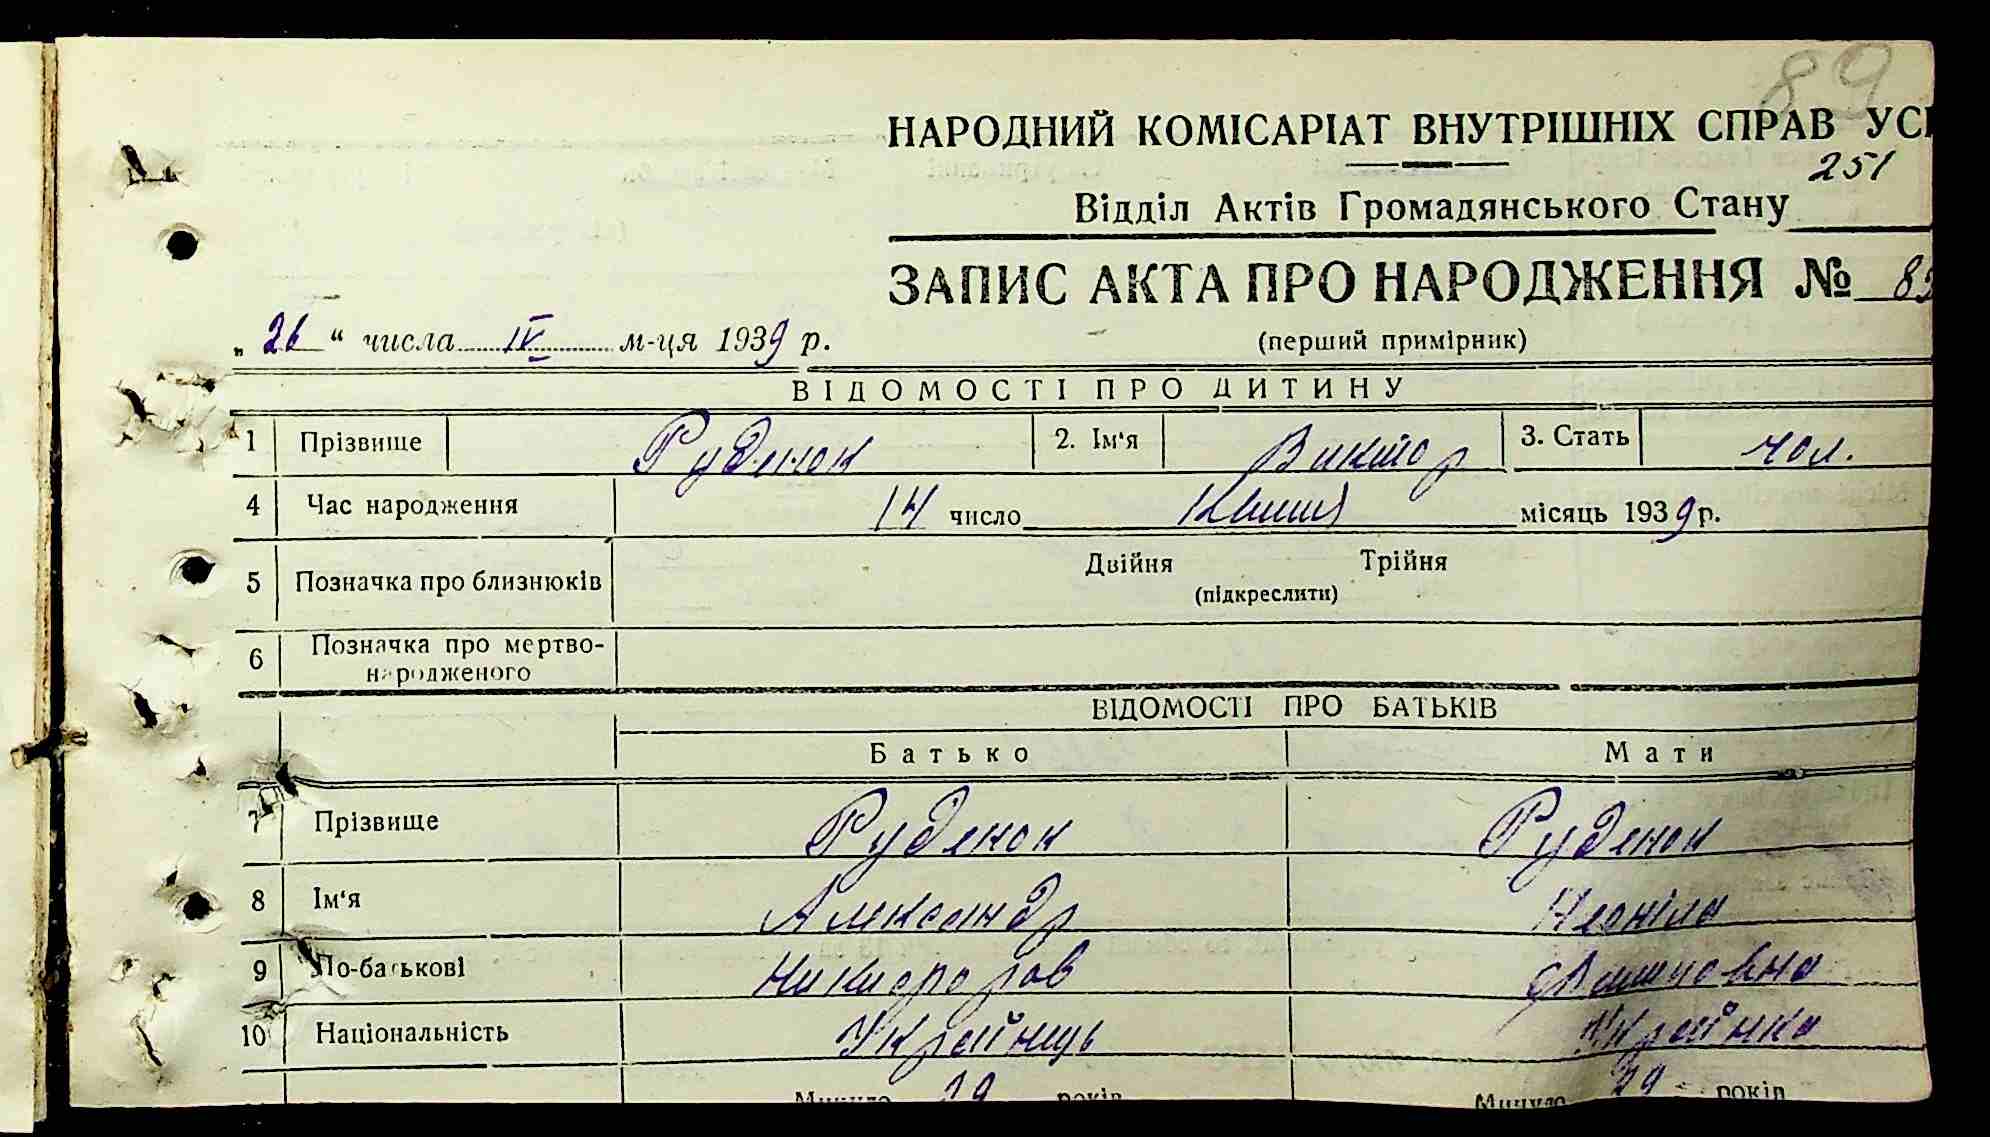 89
НАРОДНИЙ КОМІСАРІАТ ВНУТРІШНІХ СПРАВ УС
251
Відділ Актів Громадянського Стану
ЗАПИС АКТА ПРО НАРОДЖЕННЯ № 89
„26“ числа IV м-ця 1939 р.
(перший примірник)
ВІДОМОСТІ ПРО ДИТИНУ
1 Прізвище Руденок 2. Ім'я Виктор 3. Стать чол.
4 Час народження 14 число Квітня місяць 1939 р.
5 Позначка про близнюків Двійня Трійня
(підкреслити)
6 Позначка про мертво-
народженого
ВІДОМОСТІ ПРО БАТЬКІВ
Батько Мати
7 Прізвище Руденок Руденок
8 Ім'я Александр Неоніла
9 По-батькові Никифоров
10 Національність Українець Українка
Минуло 29 років Минуло 29 років